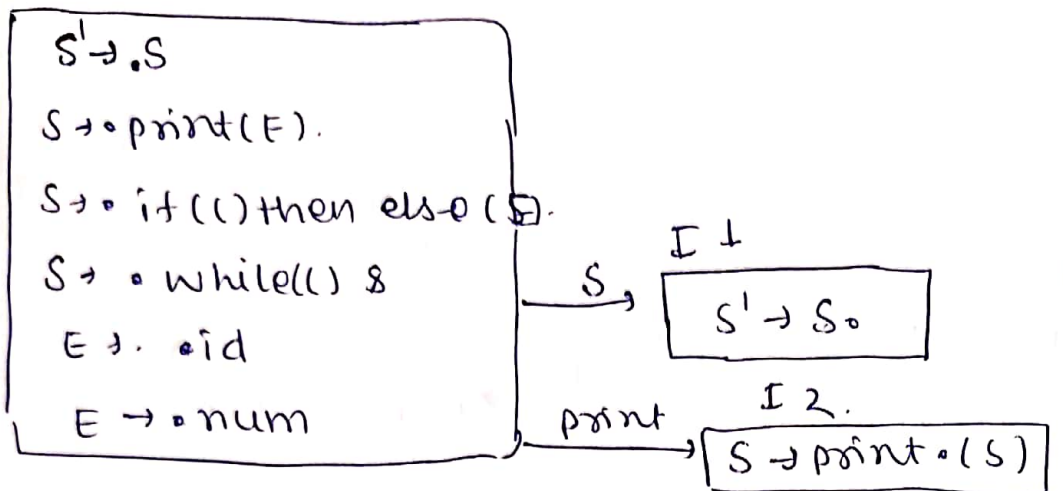 S' → .S
S → • print(E).
S → • if (() then else (E).
S → • while(() S
E → . •id
E → • num
S
I 1
S' → S•
print
I 2.
S → print • (S)